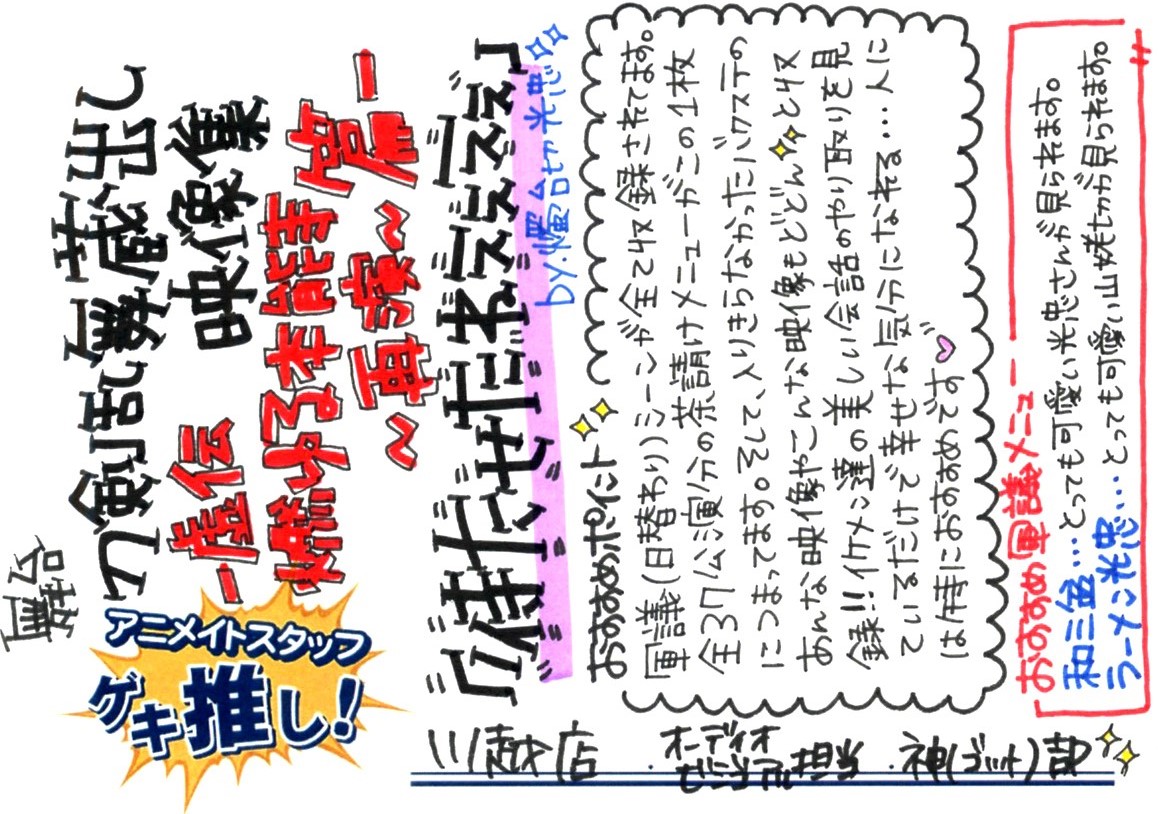 舞台
刀剣乱舞蔵出し
映像集
ー虚伝
燃ゆる本能寺
～再演～ 篇ー
アニメイトスタッフ
ゲキ推し!
「待たせだねえぇぇ」
by.燭台切光忠
おすすめポイント
軍議(日替わり)シーンが全て収録されてます。
全37公演分の茶請けメニューがこの1枚
につまってます。そして、入りきらなかったバクステの
あんな映像やこんな映像もどどんっと収
録!!イケメン達の美しい会話のやり取りを見
ているだけで幸せな気分になれる…人に
は特におすすめです♡
おすすめ軍議メニュー
和三盆…とっても可愛い光忠さんが見られます。
ラーメン光忠…とっても可愛い山姥切が見られます。
川越店・オーディオ
ビジュアル担当・神(ゴット)部